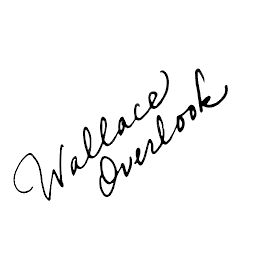 Wallace
Overlook